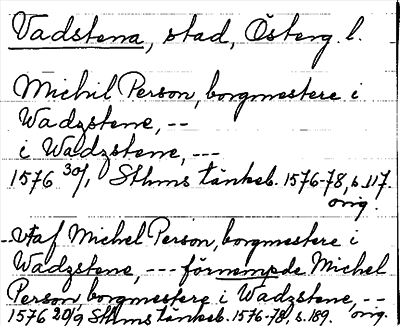 Vadstena, stad, Österg. l.
Michil Person, borgmestere i
Wadzstene, --
i Wadzstene, ---
1576 30/1 Sthms tänkeb. 1576-78, s. 117.
orig.
--Utaf Michel Person, borgmestere i
Wadzstene, --- förnempde Michel
Person borgmestere i Wadzstene, --
1576 20/9 Sthms tänkeb. 1576-78, s. 189. orig.